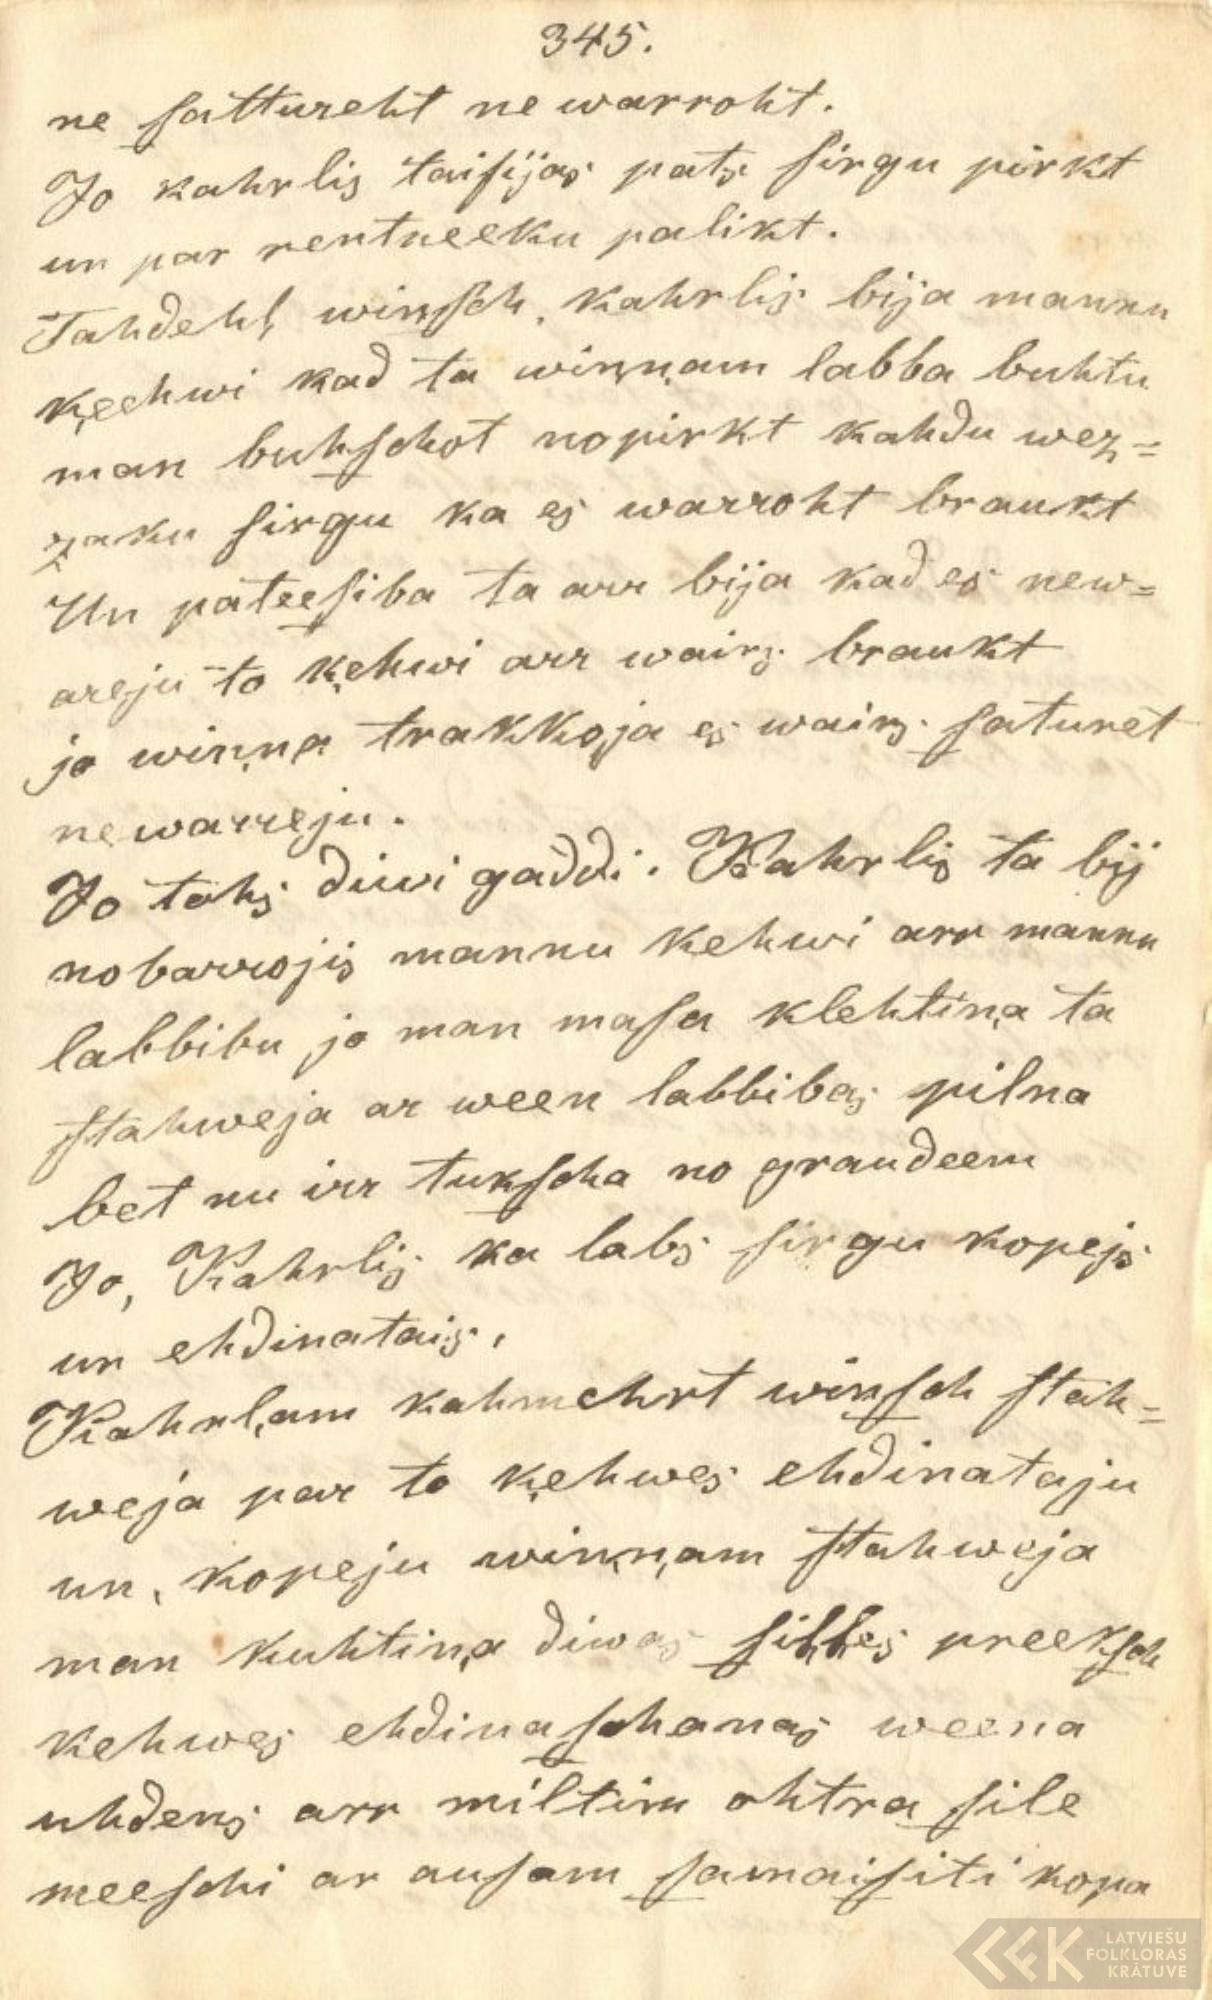 345.
ne sattureht ne warroht.
Jo kahrlis taisijas pats sirgu pirkt
un par rentneeku palikt.
Tahdehļ winsch, kahrlis bija mannu
ķeehwi kad ta wiņņam labba buhtu
man buhschot nopirkt kahdu wez=
zaku sirgu ka es warroht braukt
Un pateesiba ta arr bija kad es new=
areju to ķehwi arr wairs braukt
jo wiņņa trakkoja es wairs saturet
newarreju.
Jo tahs diwi gaddi. Kahrlis ta bij
nobarrojis mannu kehwi arr mannu
labbibu jo man masa klehtiņa ta
stahweja ar ween labbibas pilna
bet nu irr tukscha no graudeem
Jo, Kahrlis ka labs sirgu kopejs
un ehdinatais,
Kahrļam kahmehrt winsch stah=
weja par to ķehwes ehdinataju
un, kopeju wiņņam stahweja
man kuhtiņa diwas silles preeksch
kehwes ehdinaschanas weena
uhdens arr miltim ohtra sile
meeschi ar ausam samaisiti kopa
LATVIEŠU
FOLKLORAS
KRĀTUVE